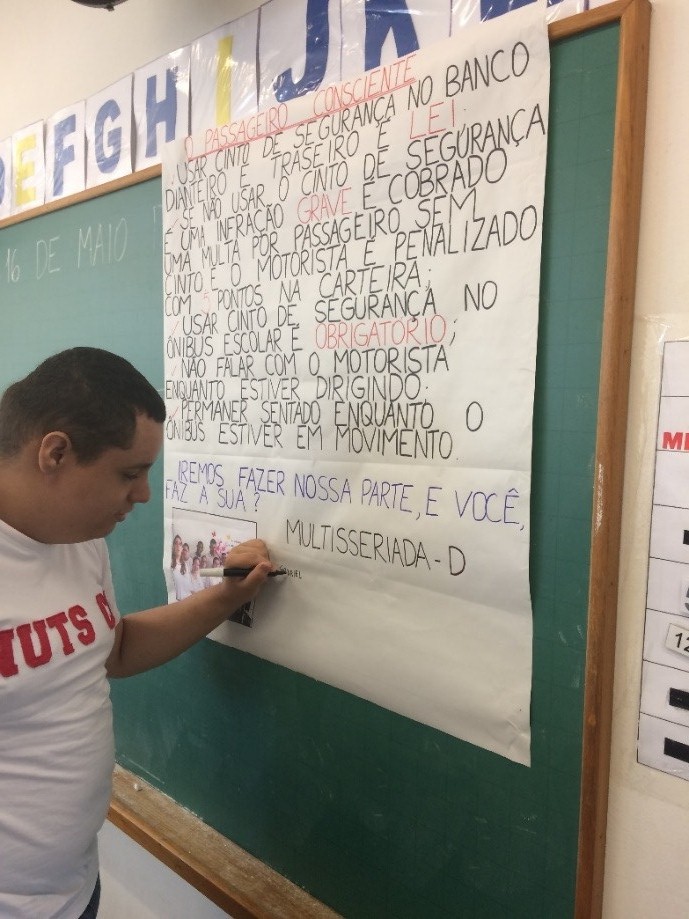 E F G H I J K
16 DE MAIO
O PASSAGEIRO CONSCIENTE
USAR CINTO DE SEGURANÇA NO BANCO
DIANTEIRO E TRASEIRO É LEI.
SE NÃO USAR O CINTO DE SEGURANÇA
É UMA INFRAÇÃO GRAVE E COBRADO
UMA MULTA POR PASSAGEIRO SEM
CINTO E O MOTORISTA É PENALIZADO
COM 5 PONTOS NA CARTEIRA;
USAR CINTO DE SEGURANÇA NO
ÔNIBUS ESCOLAR É OBRIGATÓRIO;
NÃO FALAR COM O MOTORISTA
ENQUANTO ESTIVER DIRIGINDO.
PERMANER SENTADO ENQUANTO O
ÔNIBUS ESTIVER EM MOVIMENTO.
IREMOS FAZER NOSSA PARTE, E VOCÊ,
FAZ A SUA?
MULTISSERIADA-D
NUTS
12